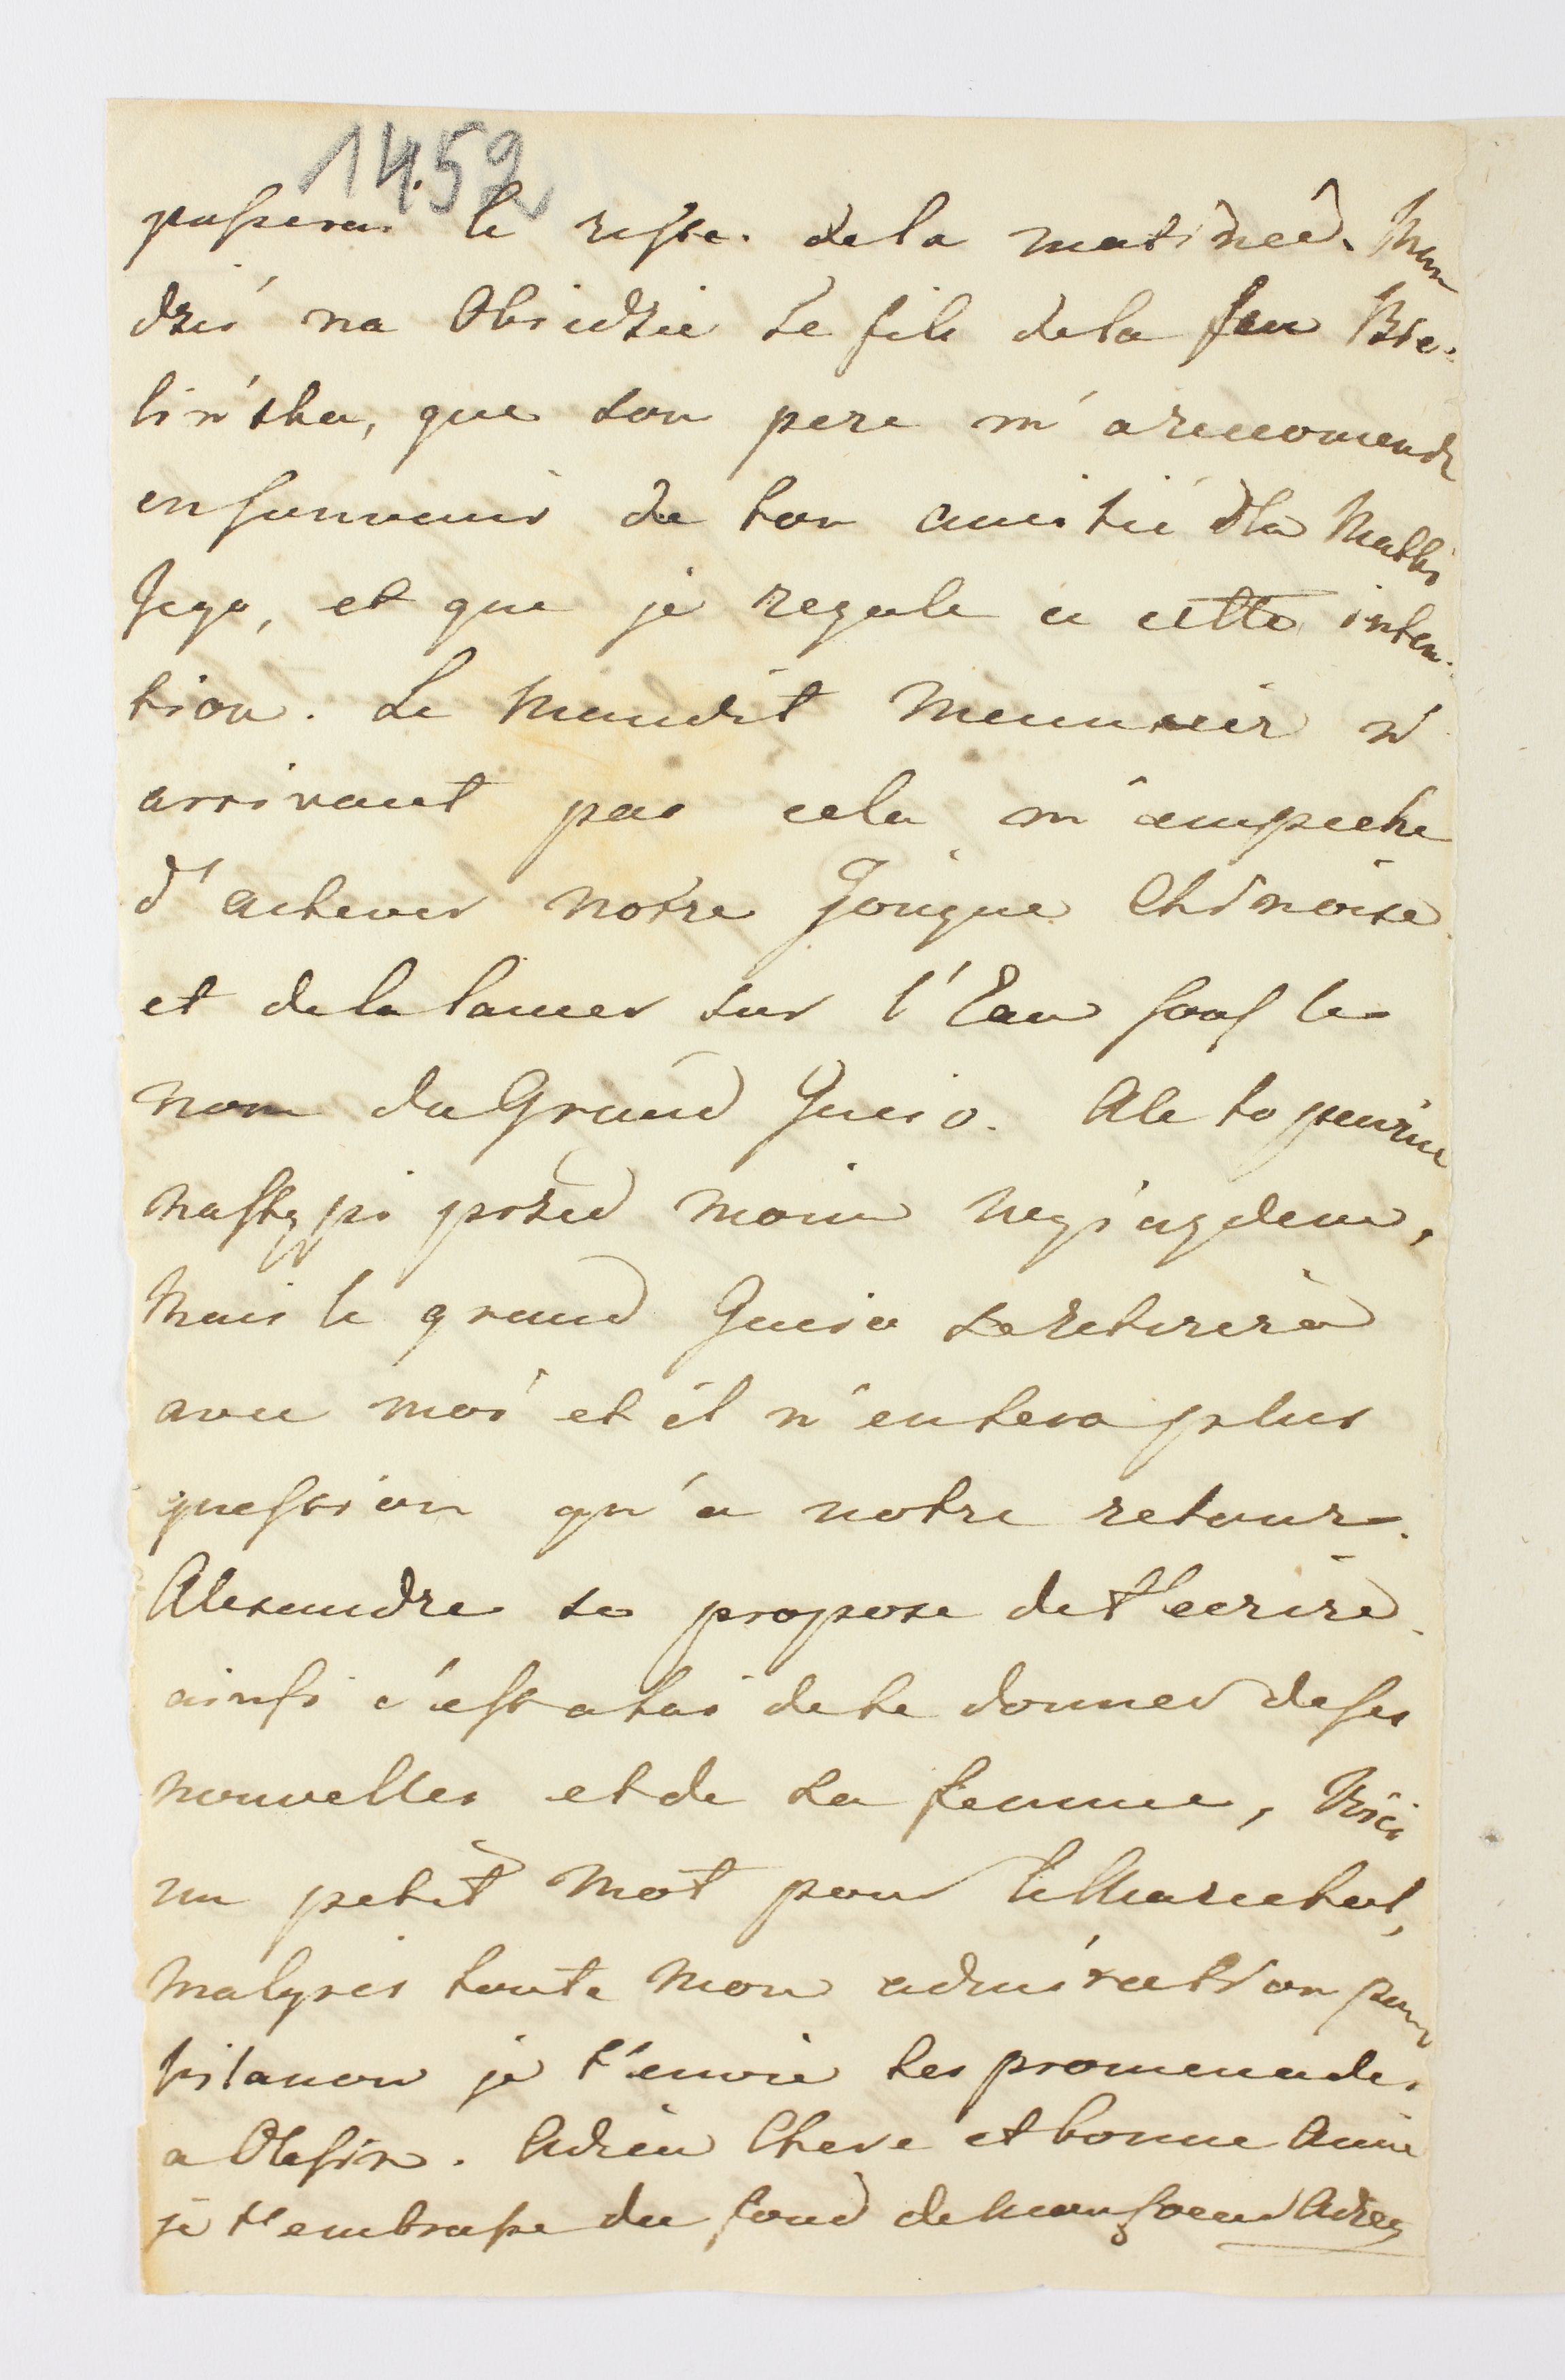 1452
passerai le reste. de la matineé. Mam
dziś na Obiedzie Le fils de la feu Bie-
lin'ska, que son pere m'a recomende
en souvenir de ton amitié dla Matki
Jego, et que je regale a cette inten-
tion. Le Maudit Menusier n'
arrivant pas cela m'empeche
d'achever notre Jonque Chinoise
et de la lancer sur l'Eau sous le
nom du Grand
Ale to pewnie
nastąpi przed moim wyiazdem,
Mais le grand se retirera
avec moi et il n'en sera plus
question qu'a notre retour.
Alexandre se propose de t'ecrire
ainsi c'est a lui de te donner de ses
nouvelles et de sa femme, Voici
un petit Mot pour le Marechal,
Malgres toute Mon admiration pour
je t'envie tes promenades
a Olesin. Adieu Chere et bonne Amie
je t'embrasse du fond de mon Coeur Adieu